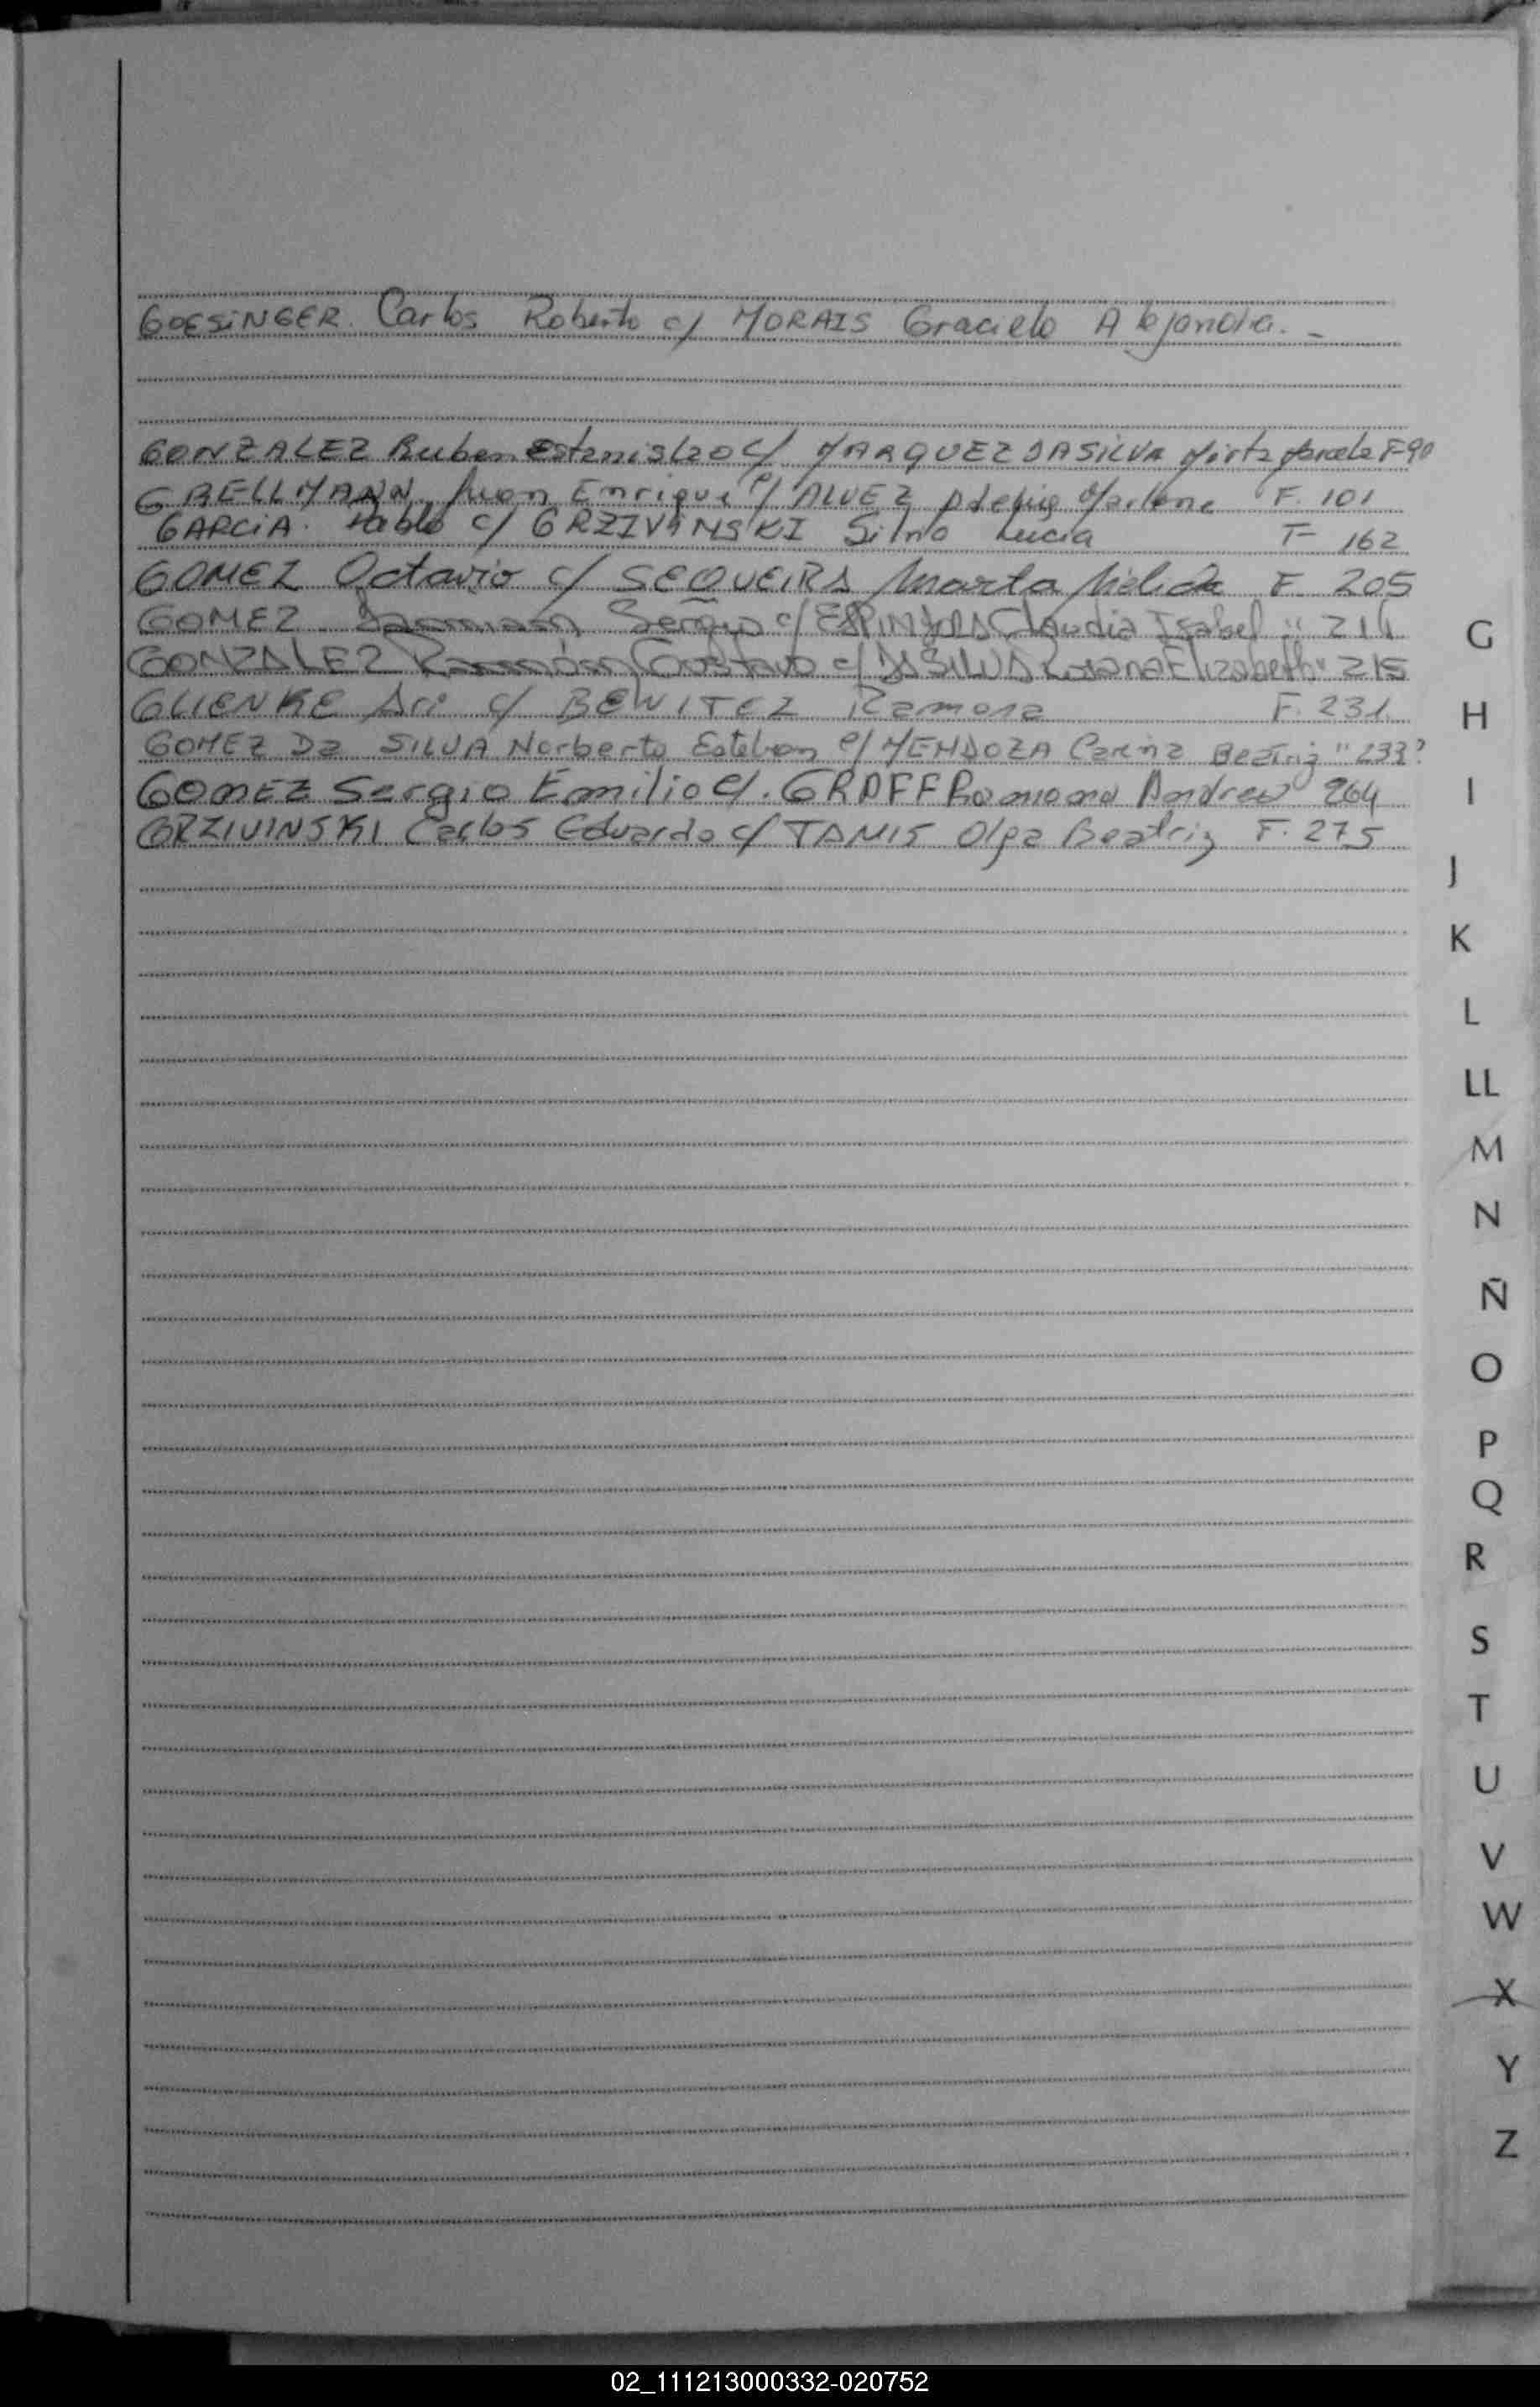 GOESINGER. Carlos Roberto c/ MORAIS Graciela Alejandra. -
GONZALEZ Ruben Estanislao c/ MARQUEZ DA SILVA Mirta Marcela F-90
GRELLMANN Juan Enrique c/ ALVEZ Marlene F. 101
GARCIA. Pablo c/ GRZIVINSKI Silvia Lucia F- 162
GOMEZ Octavio c/ SEQUEIRA Marta Nelida F. 205
GOMEZ Sergio c/ ESPINDOLA Claudia Isabel " 214
GONZALEZ Ramón Gustavo c/ DA SILVA Rosana Elizabeth " 215
GLIENKE Ari c/ BENITEZ Ramona F. 231.
GOMEZ Da SILVA Norberto Esteban c/ MENDOZA Carina Beatriz " 233?
GOMEZ Sergio Emilio c/. GRAFF Ramona Andrea 264
GRZIVINSKI Carlos Eduardo c/ TAMIS Olga Beatriz F. 275
G
H
I
J
K
L
LL
M
N
Ñ
O
P
Q
R
S
T
U
V
W
X
Y
Z
02_111213000332-020752